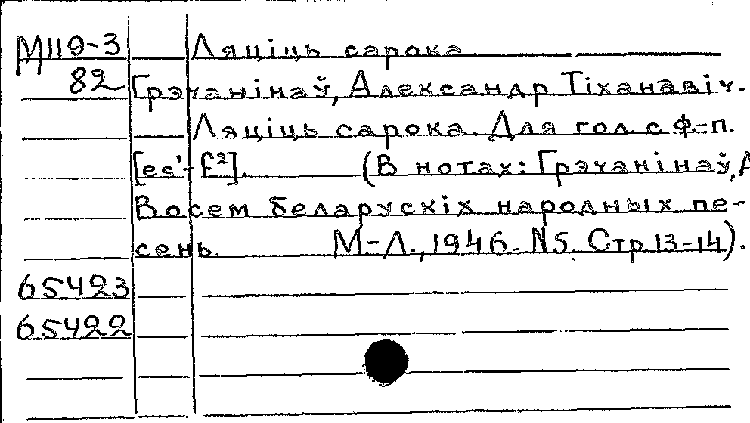 М119-3 Ляціць сарока
82 Грэчанінаў, Александр Тіханавіч.
Ляціць сарока. Для гол. с ф-п.
(В нотах: Грэчанінаў, А
Восем беларускіх народных пе-
сень. М-Л., 1946. N5. Стр. 13-14).
65423
65422